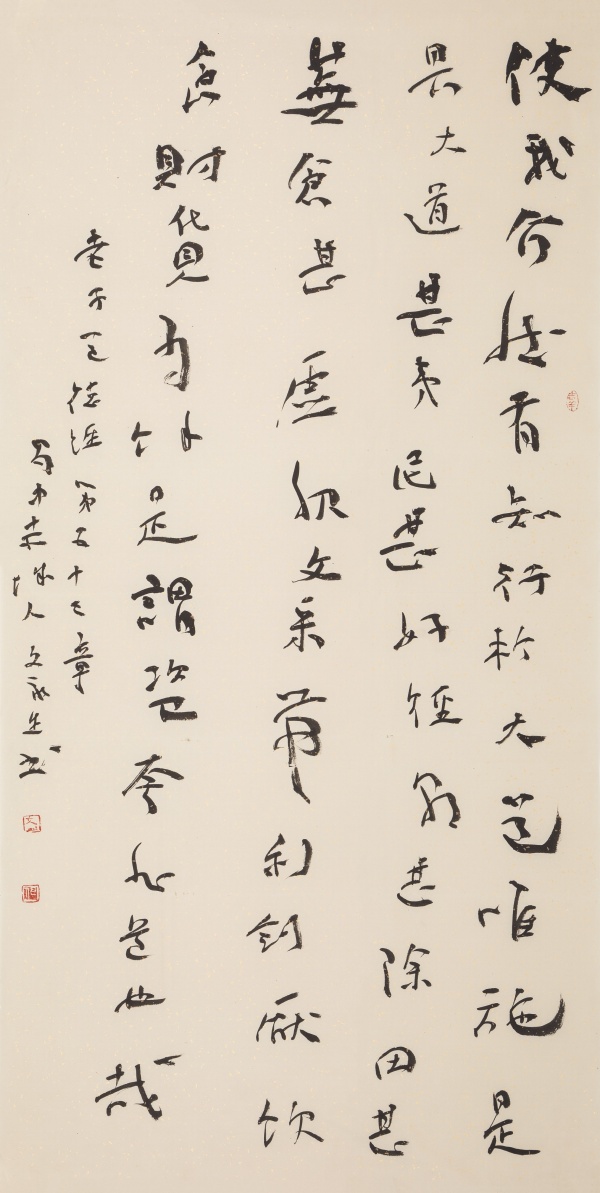 使我介然有知行於大道唯施是
畏大道甚夷民甚好徑朝甚除田甚
蕪倉甚虛服文采帶利劍厭飲
食財貨有餘是謂盜夸非道也哉
老子道德經第五十三章
蜀中赤城人文永生书